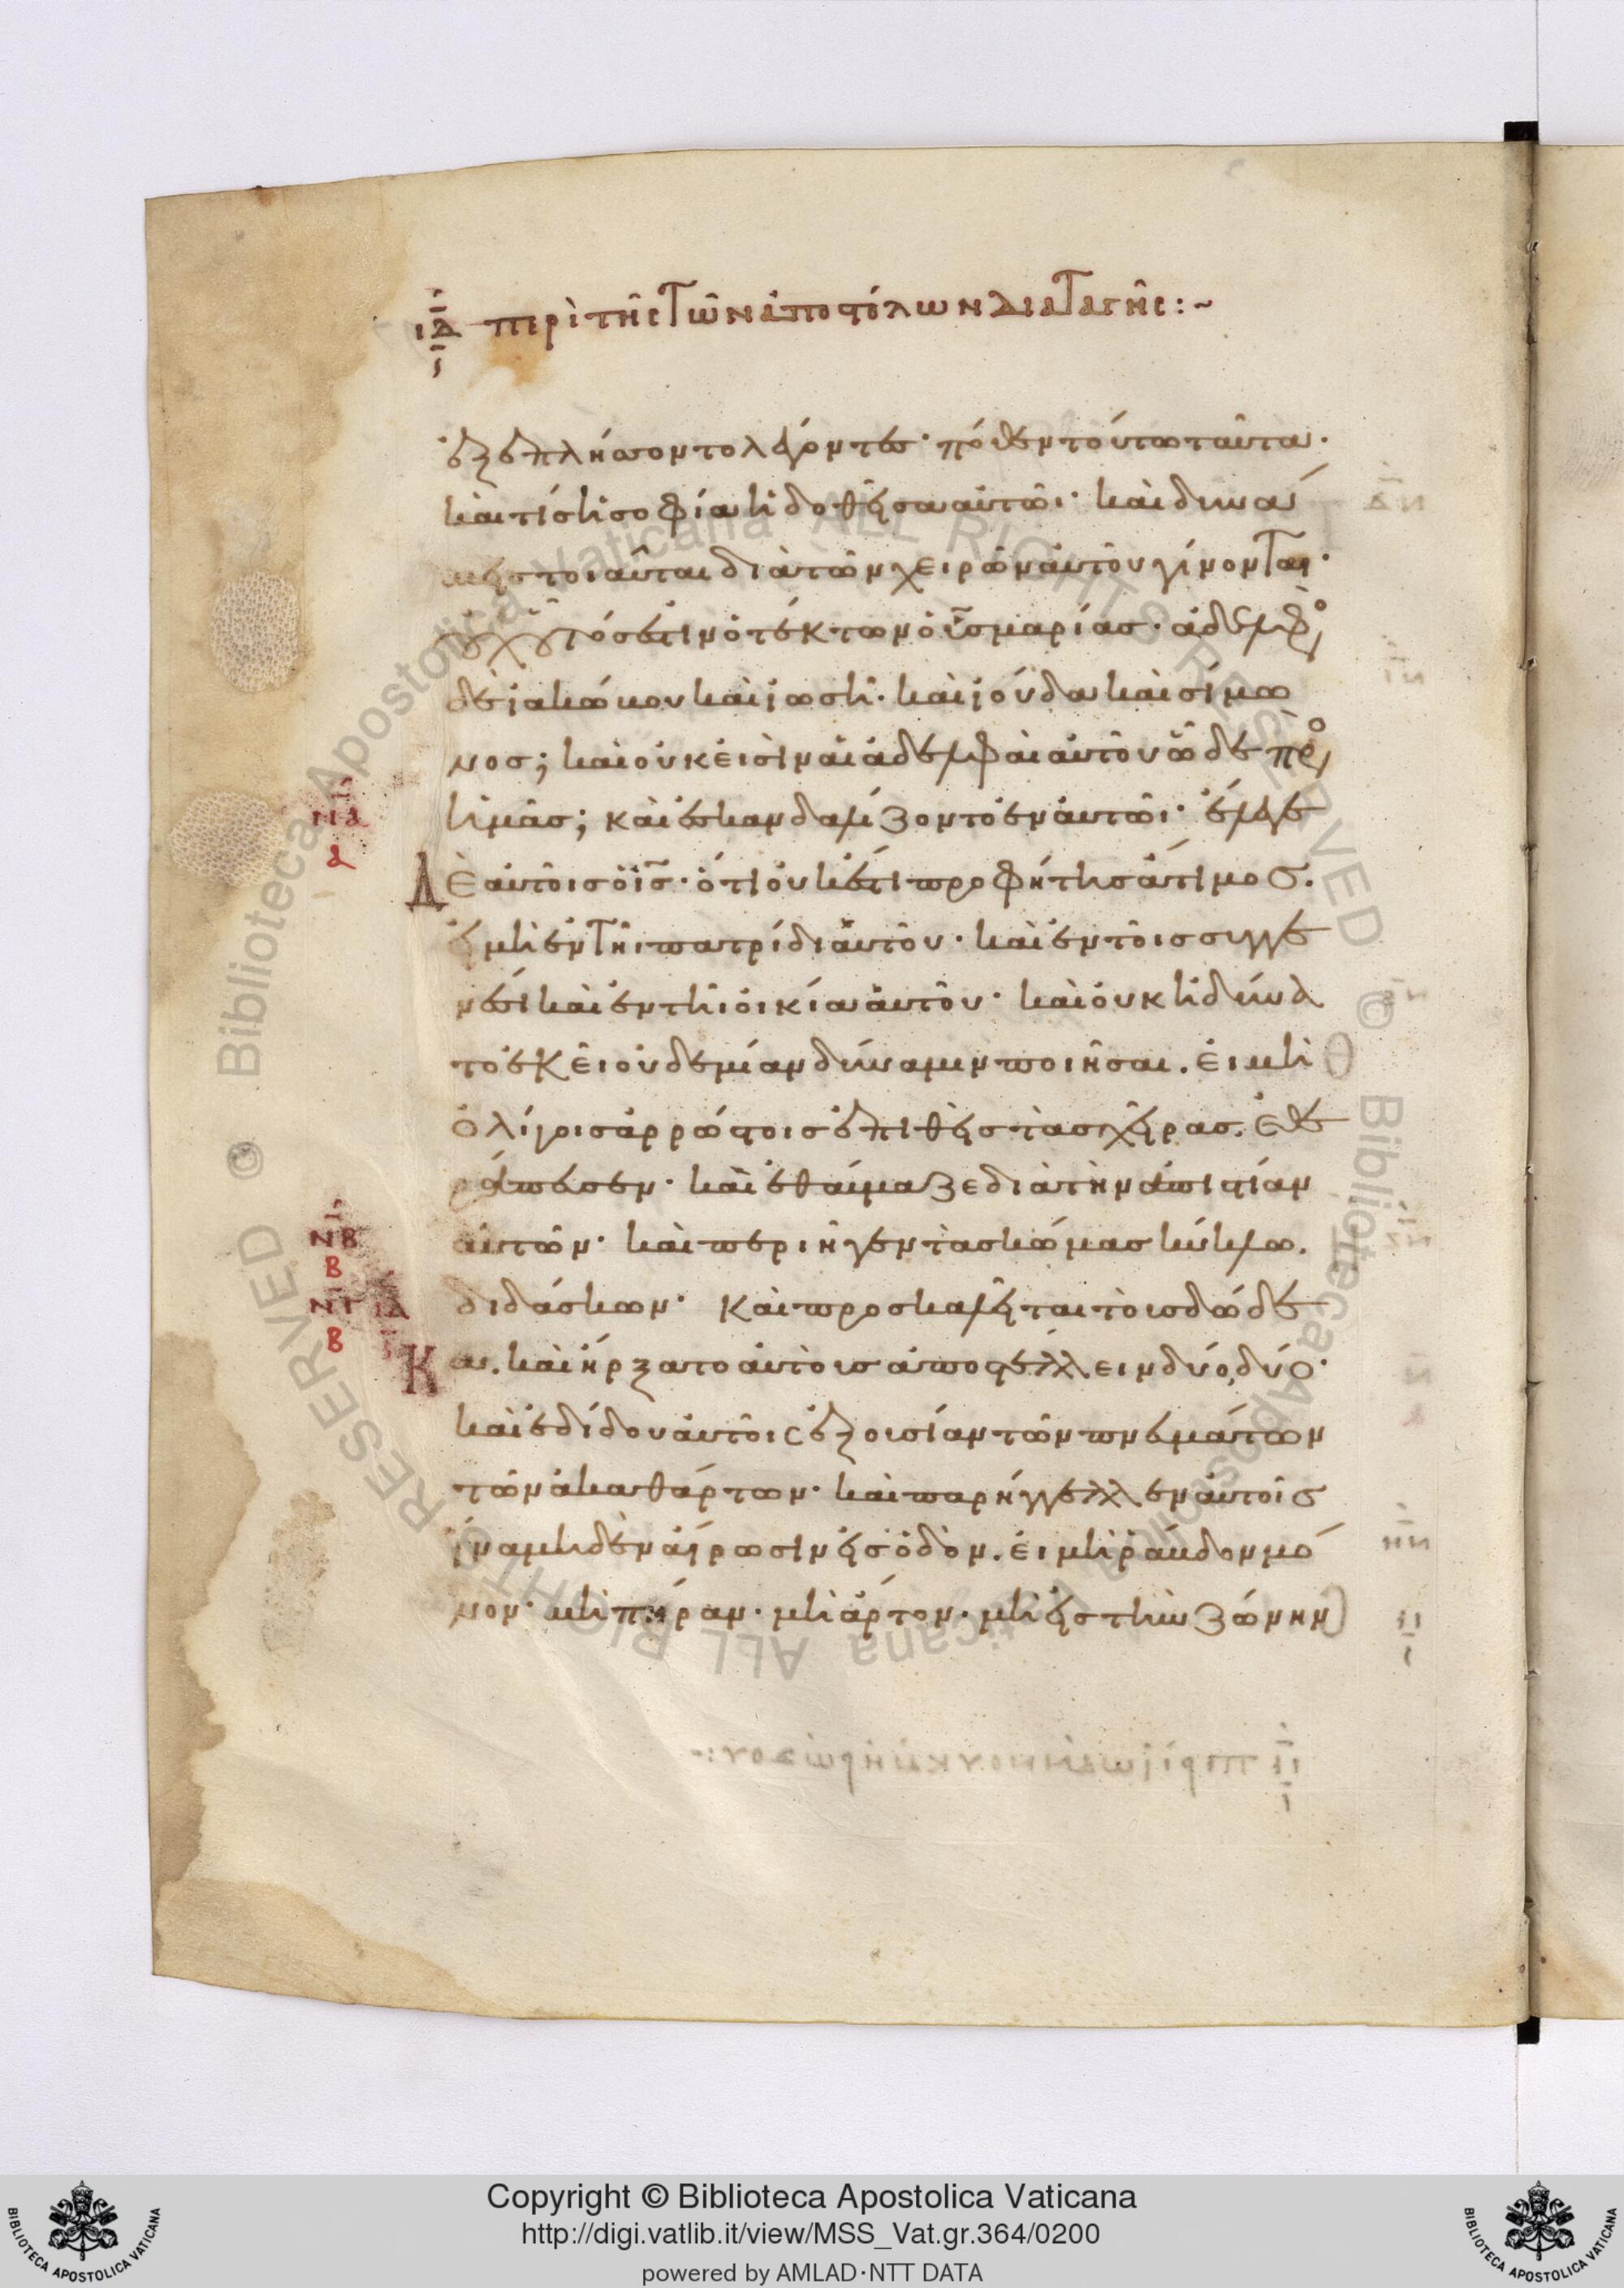 ιδ περὶ τῆς τῶν ἀποστόλων διαταγῆς :~
ἐξεπλήσσοντο λέγοντες· πόθεν τούτω ταῦτα·
καὶ τίς ἡ σοφία ἡ δοθεῖσα αὐτῶι· καὶ δυνά
μεις τοιαῦται διὰ τῶν χειρῶν αὐτοῦ γίνονται·
οὐχ οὗτός ἐστιν ὁ τέκτων ὁ υ̅ς̅ μαρίας· ἀδελφὸ
δὲ ἰακώβου καὶ ἰωσῆ· καὶ ἰούδα καὶ σίμω
νος; καὶ οὐκ εἰσὶν αἱ ἀδελφαὶ αὐτοῦ ὧδε πρὸ
ἡμᾶς; καὶ ἐσκανδαλίζοντο ἐν αὐτῶι· ἔλεγε
Δὲ αὐτοῖς ὁ ι̅ς̅· ὅτι οὐκ ἔστι προφήτης ἄτιμος.
εἰ μὴ ἐν τῆι πατρίδι αὐτοῦ· καὶ ἐν τοῖς συγγε
νέσι καὶ ἐν τῆι οἰκία αὐτοῦ· καὶ οὐκ ἠδύνα
το ἐκεῖ οὐδεμίαν δύναμιν ποιῆσαι. εἰ μὴ
ὀλίγοις ἀρρώστοις ἐπιθεὶς τὰς χεῖρας. ἐθε
ράπευσεν· καὶ ἐθαύμαζε διὰ τὴν ἀπιστίαν
αὐτῶν· καὶ περιῆγεν τὰς κώμας κύκλω.
διδάσκων· καὶ προσκαλεῖται τοὺς δώδε
Κα. καὶ ἤρξατο αὐτοὺς ἀποστέλλειν δύο, δύο·
καὶ ἐδίδου αὐτοῖς ἐξουσίαν τῶν πνευμάτων
τῶν ἀκαθάρτων· καὶ παρήγγελλεν αὐτοῖς
ἵνα μηδὲν αἴρωσιν εἰς ὁδὸν. εἰ μὴ ῥάβδον μό
νον· μὴ πήραν· μὴ ἄρτον· μὴ εἰς τὴν ζώνην
να
α
νβ
β
νγ ιδ
β
Copyright © Biblioteca Apostolica Vaticana
http://digi.vatlib.it/view/MSS_Vat.gr.364/0200
powered by AMLAD·NTT DATA
BIBLIOTECA APOSTOLICA VATICANA
BIBLIOTECA APOSTOLICA VATICANA
© Biblioteca Apostolica Vaticana ALL RIGHTS RESERVED
© Biblioteca Apostolica Vaticana ALL RIGHTS RESERVED